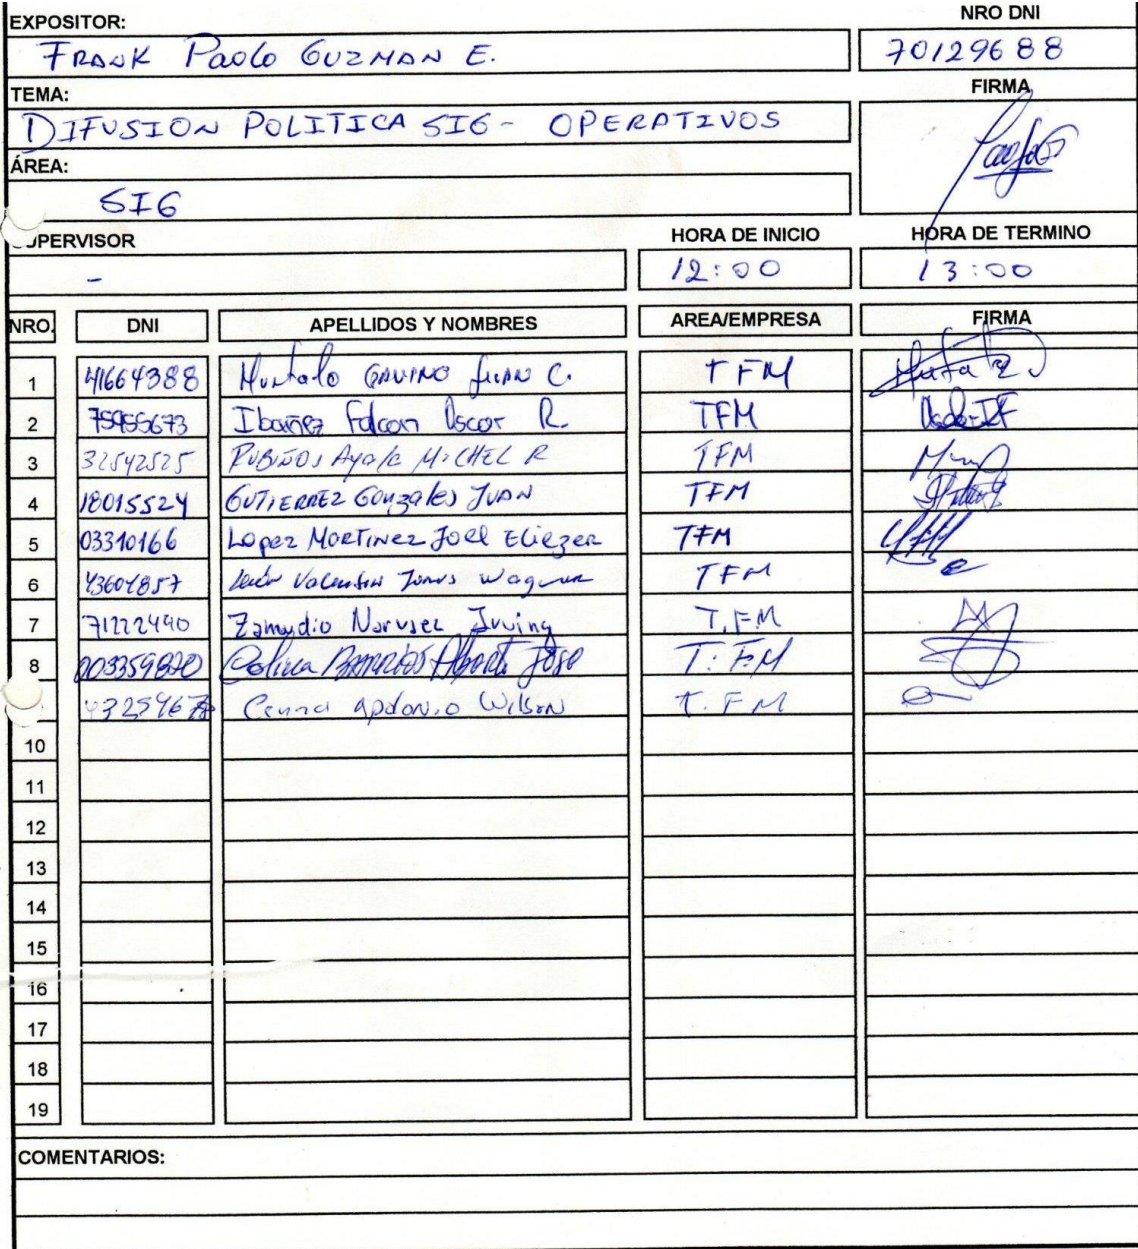 EXPOSITOR: NRO DNI
FRANK Paolo GUZMAN E. 70129688
TEMA: FIRMA
DIFUSION POLITICA SIG - OPERATIVOS
ÁREA:
SIG
SUPERVISOR HORA DE INICIO HORA DE TERMINO
- 12:00 13:00
NRO. DNI APELLIDOS Y NOMBRES AREA/EMPRESA FIRMA
1 41664388 Hurtado GAVINO JUAN C. TFM
2 Ibañez Falcon Oscar R. TFM
3 32542525 RUBIÑOS Ayala MICHEL R TFM
4 18015524 GUTIERREZ Gonzales JUAN TFM
5 03310166 Lopez MARTINEZ Joel Eliezer TFM
6 43604857 Valentin Wagner TFM
7 71222490 Zamudio Irving T.FM
8 003359820 Colina BARRIOS Alberto José T.FM
Wilson T.FM
10
11
12
13
14
15
16
17
18
19
COMENTARIOS: